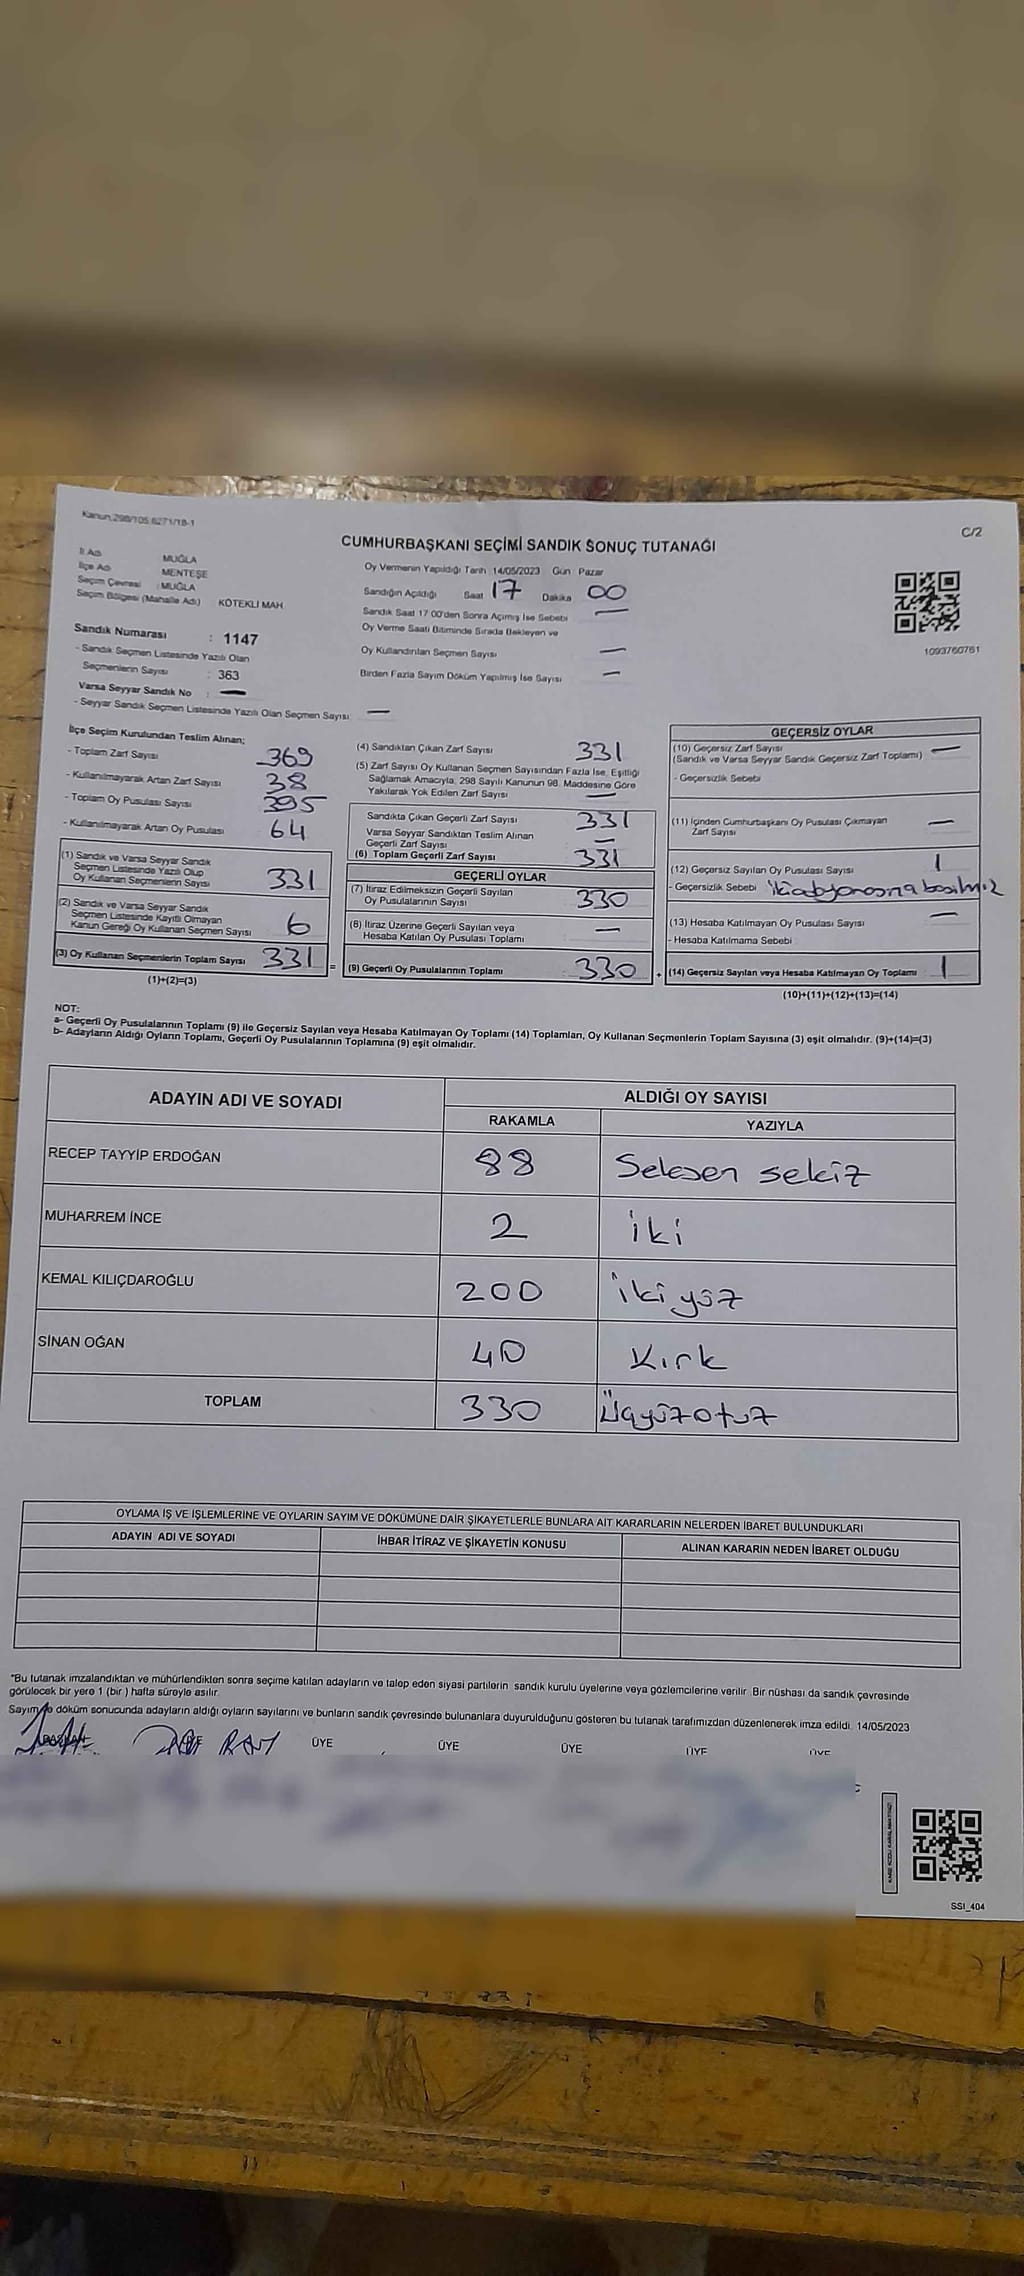 Kanun:298/105,6271/18-1
C/2
CUMHURBAŞKANI SEÇİMİ SANDIK SONUÇ TUTANAĞI
İl Adı MUĞLA
İlçe Adı MENTEŞE
Seçim Çevresi : MUĞLA
Seçim Bölgesi (Mahalle Adı) KÖTEKLİ MAH
Sandık Numarası : 1147
- Sandık Seçmen Listesinde Yazılı Olan
Seçmenlerin Sayısı : 363
Varsa Seyyar Sandık No : —
- Seyyar Sandık Seçmen Listesinde Yazılı Olan Seçmen Sayısı: —
Oy Vermenin Yapıldığı Tarih 14/05/2023 Gün : Pazar
Sandığın Açıldığı Saat 17 Dakika 00
Sandık Saat 17:00'den Sonra Açımış İse Sebebi —
Oy Verme Saati Bitiminde Sırada Bekleyen ve
Oy Kullandırılan Seçmen Sayısı —
Birden Fazla Sayım Döküm Yapılmış İse Sayısı —
1093760761
İlçe Seçim Kurulundan Teslim Alınan;
- Toplam Zarf Sayısı 369
- Kullanılmayarak Artan Zarf Sayısı 38
- Toplam Oy Pusulası Sayısı 395
- Kullanılmayarak Artan Oy Pusulası 64
(1) Sandık ve Varsa Seyyar Sandık
Seçmen Listesinde Yazılı Olup
Oy Kullanan Seçmenlerin Sayısı 331
(2) Sandık ve Varsa Seyyar Sandık
Seçmen Listesinde Kayıtlı Olmayan
Kanun Gereği Oy Kullanan Seçmen Sayısı 6
(3) Oy Kullanan Seçmenlerin Toplam Sayısı 331 =
(1)+(2)=(3)
(4) Sandıktan Çıkan Zarf Sayısı 331
(5) Zarf Sayısı Oy Kullanan Seçmen Sayısından Fazla İse, Eşitliği
Sağlamak Amacıyla, 298 Sayılı Kanunun 98. Maddesine Göre
Yakılarak Yok Edilen Zarf Sayısı —
Sandıkta Çıkan Geçerli Zarf Sayısı 331
Varsa Seyyar Sandıktan Teslim Alınan
Geçerli Zarf Sayısı —
(6) Toplam Geçerli Zarf Sayısı 331
GEÇERLİ OYLAR
(7) İtiraz Edilmeksizin Geçerli Sayılan
Oy Pusulalarının Sayısı 330
(8) İtiraz Üzerine Geçerli Sayılan veya
Hesaba Katılan Oy Pusulası Toplamı —
(9) Geçerli Oy Pusulalarının Toplamı : 330 +
GEÇERSİZ OYLAR
(10) Geçersiz Zarf Sayısı —
(Sandık ve Varsa Seyyar Sandık Geçersiz Zarf Toplamı)
- Geçersizlik Sebebi
(11) İçinden Cumhurbaşkanı Oy Pusulası Çıkmayan
Zarf Sayısı —
(12) Geçersiz Sayılan Oy Pusulası Sayısı 1
- Geçersizlik Sebebi
(13) Hesaba Katılmayan Oy Pusulası Sayısı —
- Hesaba Katılmama Sebebi
(14) Geçersiz Sayılan veya Hesaba Katılmayan Oy Toplamı 1
(10)+(11)+(12)+(13)=(14)
NOT:
a- Geçerli Oy Pusulalarının Toplamı (9) ile Geçersiz Sayılan veya Hesaba Katılmayan Oy Toplamı (14) Toplamları, Oy Kullanan Seçmenlerin Toplam Sayısına (3) eşit olmalıdır. (9)+(14)=(3)
b- Adayların Aldığı Oyların Toplamı, Geçerli Oy Pusulalarının Toplamına (9) eşit olmalıdır.
ADAYIN ADI VE SOYADI ALDIĞI OY SAYISI
RAKAMLA YAZIYLA
RECEP TAYYİP ERDOĞAN 88 Seksen sekiz
MUHARREM İNCE 2 iki
KEMAL KILIÇDAROĞLU 200 iki yüz
SİNAN OĞAN 40 Kırk
TOPLAM 330 Üçyüzotuz
OYLAMA İŞ VE İŞLEMLERİNE VE OYLARIN SAYIM VE DÖKÜMÜNE DAİR ŞİKAYETLERLE BUNLARA AİT KARARLARIN NELERDEN İBARET BULUNDUKLARI
ADAYIN ADI VE SOYADI İHBAR İTİRAZ VE ŞİKAYETİN KONUSU ALINAN KARARIN NEDEN İBARET OLDUĞU
*Bu tutanak imzalandıktan ve mühürlendikten sonra seçime katılan adayların ve talep eden siyasi partilerin sandık kurulu üyelerine veya gözlemcilerine verilir. Bir nüshası da sandık çevresinde
görülecek bir yere 1 (bir ) hafta süreyle asılır.
Sayım ve döküm sonucunda adayların aldığı oyların sayılarını ve bunların sandık çevresinde bulunanlara duyurulduğunu gösteren bu tutanak tarafımızdan düzenlenerek imza edildi. 14/05/2023
BAŞKAN ÜYE ÜYE ÜYE ÜYE ÜYE ÜYE
SSI_404